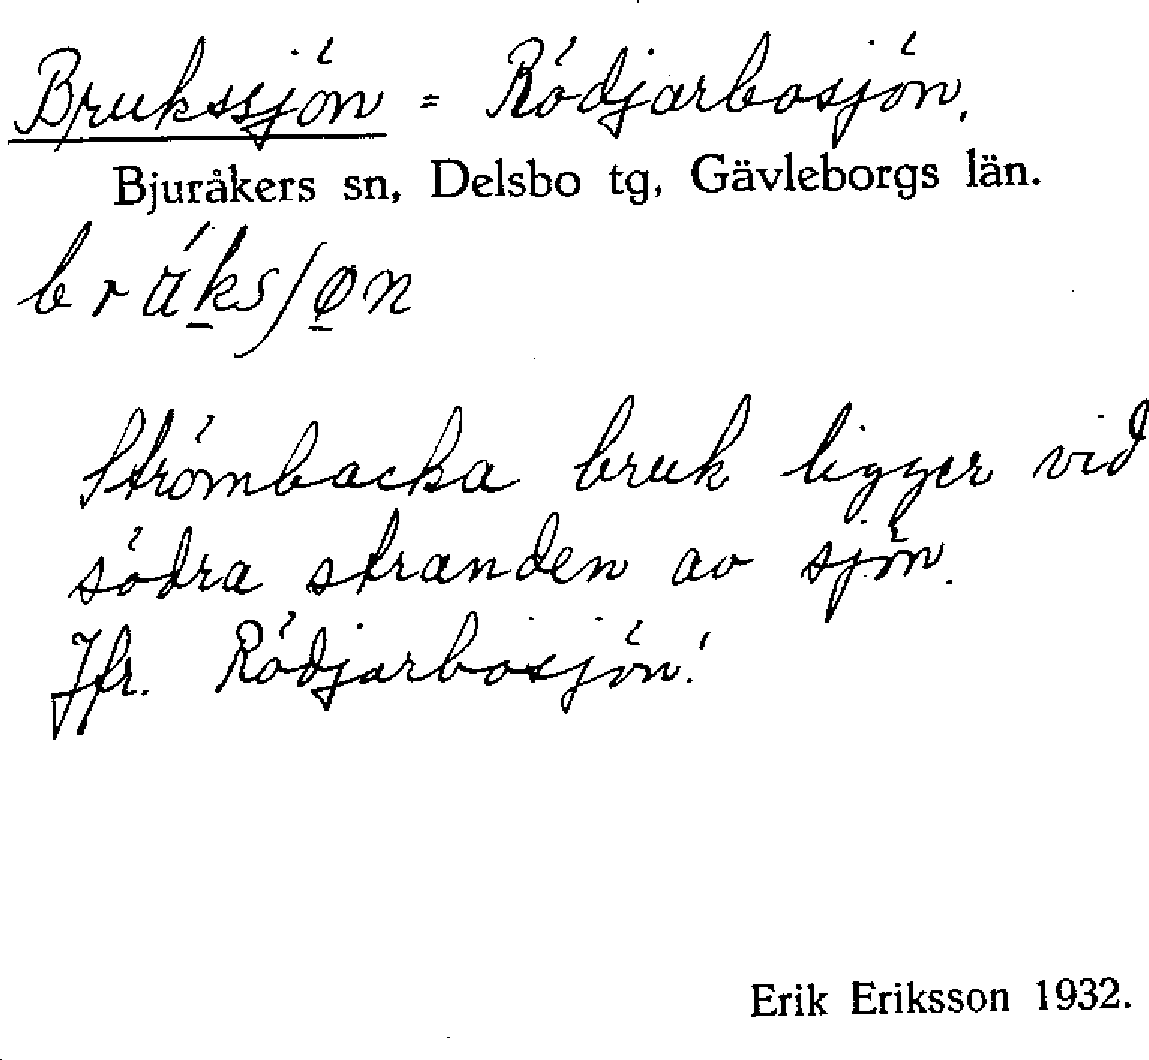 Brukssjön = Rödjarbosjön.
Bjuråkers sn, Delsbo tg, Gävleborgs län.
Strömbacka bruk ligger vid
södra stranden av sjön.
Jfr. Rödjarbosjön!
Erik Eriksson 1932.